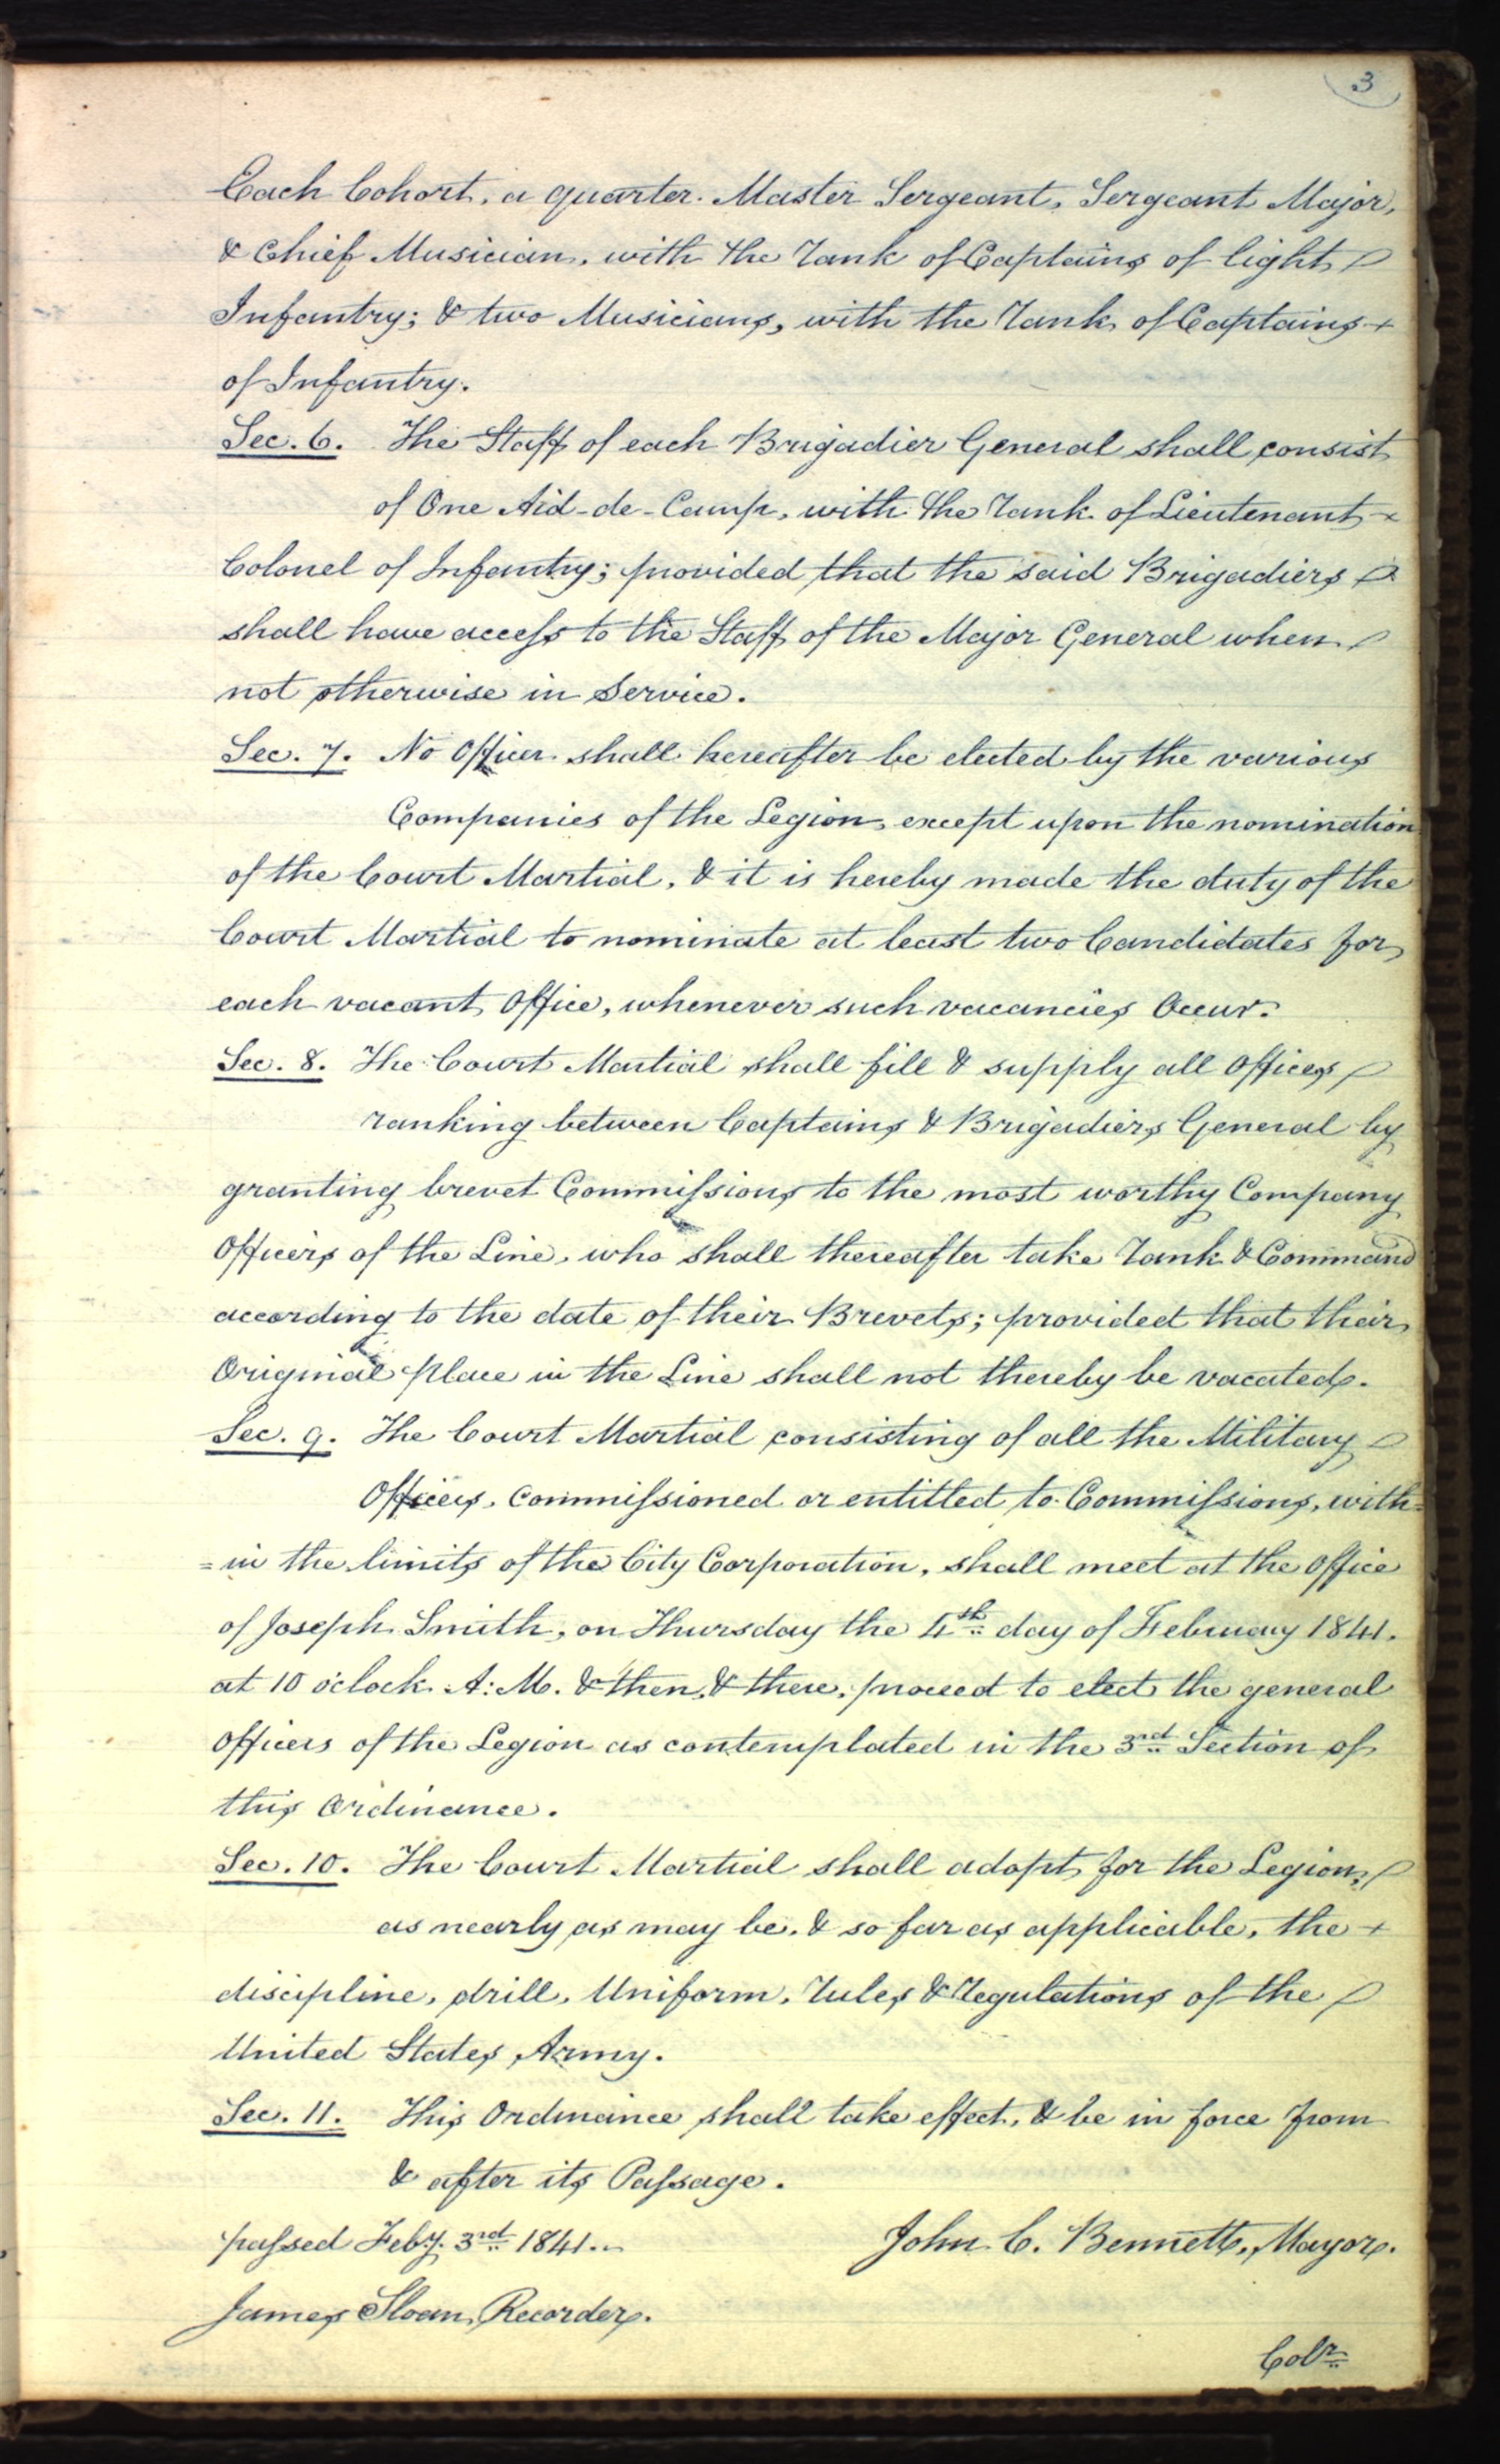 3
Each Cohort, a quarter Master Sergeant, Sergeant Major,
& Chief Musician, with the rank of Captains of light
Infantry; & two Musicians, with the rank of Captains
of Infantry.
Sec. 6. The Staff of each Brigadier General shall consist
of One Aid-de-Camp, with the rank of Lieutenant
Colonel of Infantry; provided that the said Brigadiers
shall have access to the Staff of the Major General when
not otherwise in Service.
Sec. 7. No Officer shall hereafter be elected by the various
Companies of the Legion, except upon the nomination
of the Court Martial, & it is hereby made the duty of the
Court Martial to nominate at least two Candidates for
each vacant Office, whenever such vacancies Occur.
Sec. 8. The Court Martial shall fill & supply all Offices
ranking between Captains & Brigadiers General by
granting brevet Commissions to the most worthy Company
Officers of the Line, who shall thereafter take rank & Command
according to the date of their Brevets; provided that their
Original place in the Line shall not thereby be vacated.
Sec. 9. The Court Martial consisting of all the Military
Officers, Commissioned or entitled to Commissions, with=
=in the limits of the City Corporation, shall meet at the Office
of Joseph Smith, on Thursday the 4th day of February 1841.
at 10 o'clock A: M. & then, & there, proceed to elect the general
Officers of the Legion as contemplated in the 3rd Section of
this Ordinance.
Sec. 10. The Court Martial shall adopt for the Legion,
as nearly as may be, & so far as applicable, the
discipline, drill, Uniform, rules & regulations of the
United States Army.
Sec. 11. This Ordinance shall take effect, & be in force from
& after its Passage.
passed Feby. 3rd 1841. John C. Bennett, Mayor.
James Sloan, Recorder.